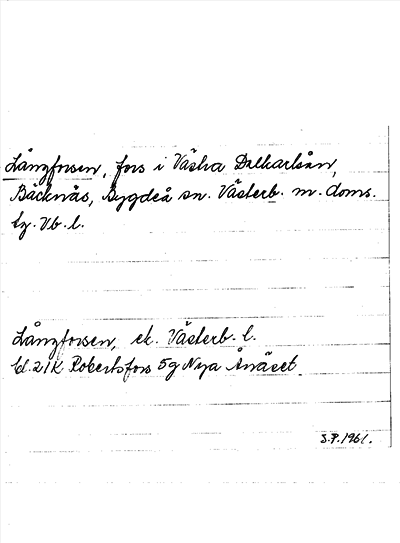 Långforsen, fors i Västra Dalkarlsån,
Bäcknäs, Bygdeå sn. Västerb. m. doms.
tg. Vb. l.
Långforsen, ek. Västerb. l.
bl. 21K Robertsfors 5g Nya Ånäset
S.F. 1961.